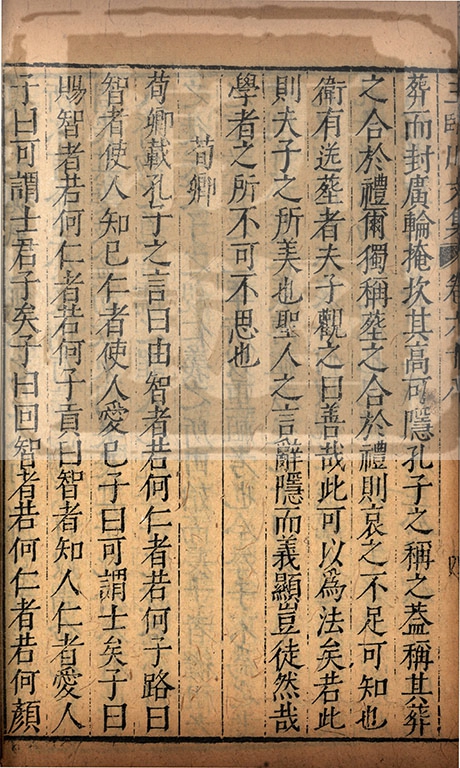 王臨川文集 卷六十八
葬而封廣輪掩坎其高可隱孔子之稱之葢稱其葬
之合於禮爾獨稱塟之合於禮則哀之不足可知也
衛有送塟者夫子觀之曰善哉此可以爲法矣若此
則夫子之所美也聖人之言辭隱而義顯豈徒然哉
學者之所不可不思也
荀卿
荀卿載孔子之言曰由智者若何仁者若何子路曰
智者使人知已仁者使人愛已子曰可謂士矣子曰
賜智者若何仁者若何子貢曰智者知人仁者愛人
子曰可謂士君子矣子曰回智者若何仁者若何顔